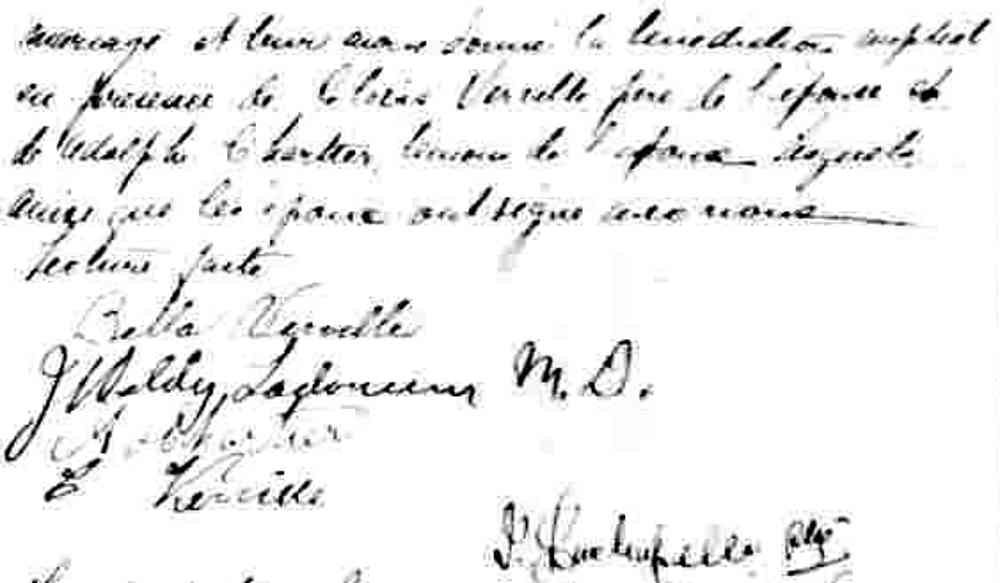 mariage et leur avons donné la bénédiction nuptiale
en présence de Clovis Verville père de l'épouse et
de Adolphe Chartier témoin de l'époux lesquels
ainsi que les époux ont signé avec nous
Lecture faite
Bella Verville
J Wildy Ladouceur M.D.
A Chartier
C Verville
Ptre